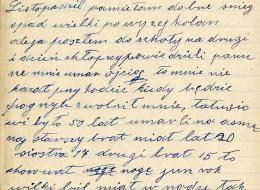 Listopadził pamiętam dobre śnieg
spad wielki po wyżej kolan
ale ja poszłem do szkoty na drugi
i dzień chłopcy powiedzieli panu
że mnie umar ojciec to mnie nie
karał przy hodzić kiedy będzie
pogryb zwolnił mnie, tatusio
wi było 50 lat umarł i na osmę
naj starszy brat miał lat 20
siostra 17 drugi brat 15 to
noge jun rok
wilki był miał w nodze tak